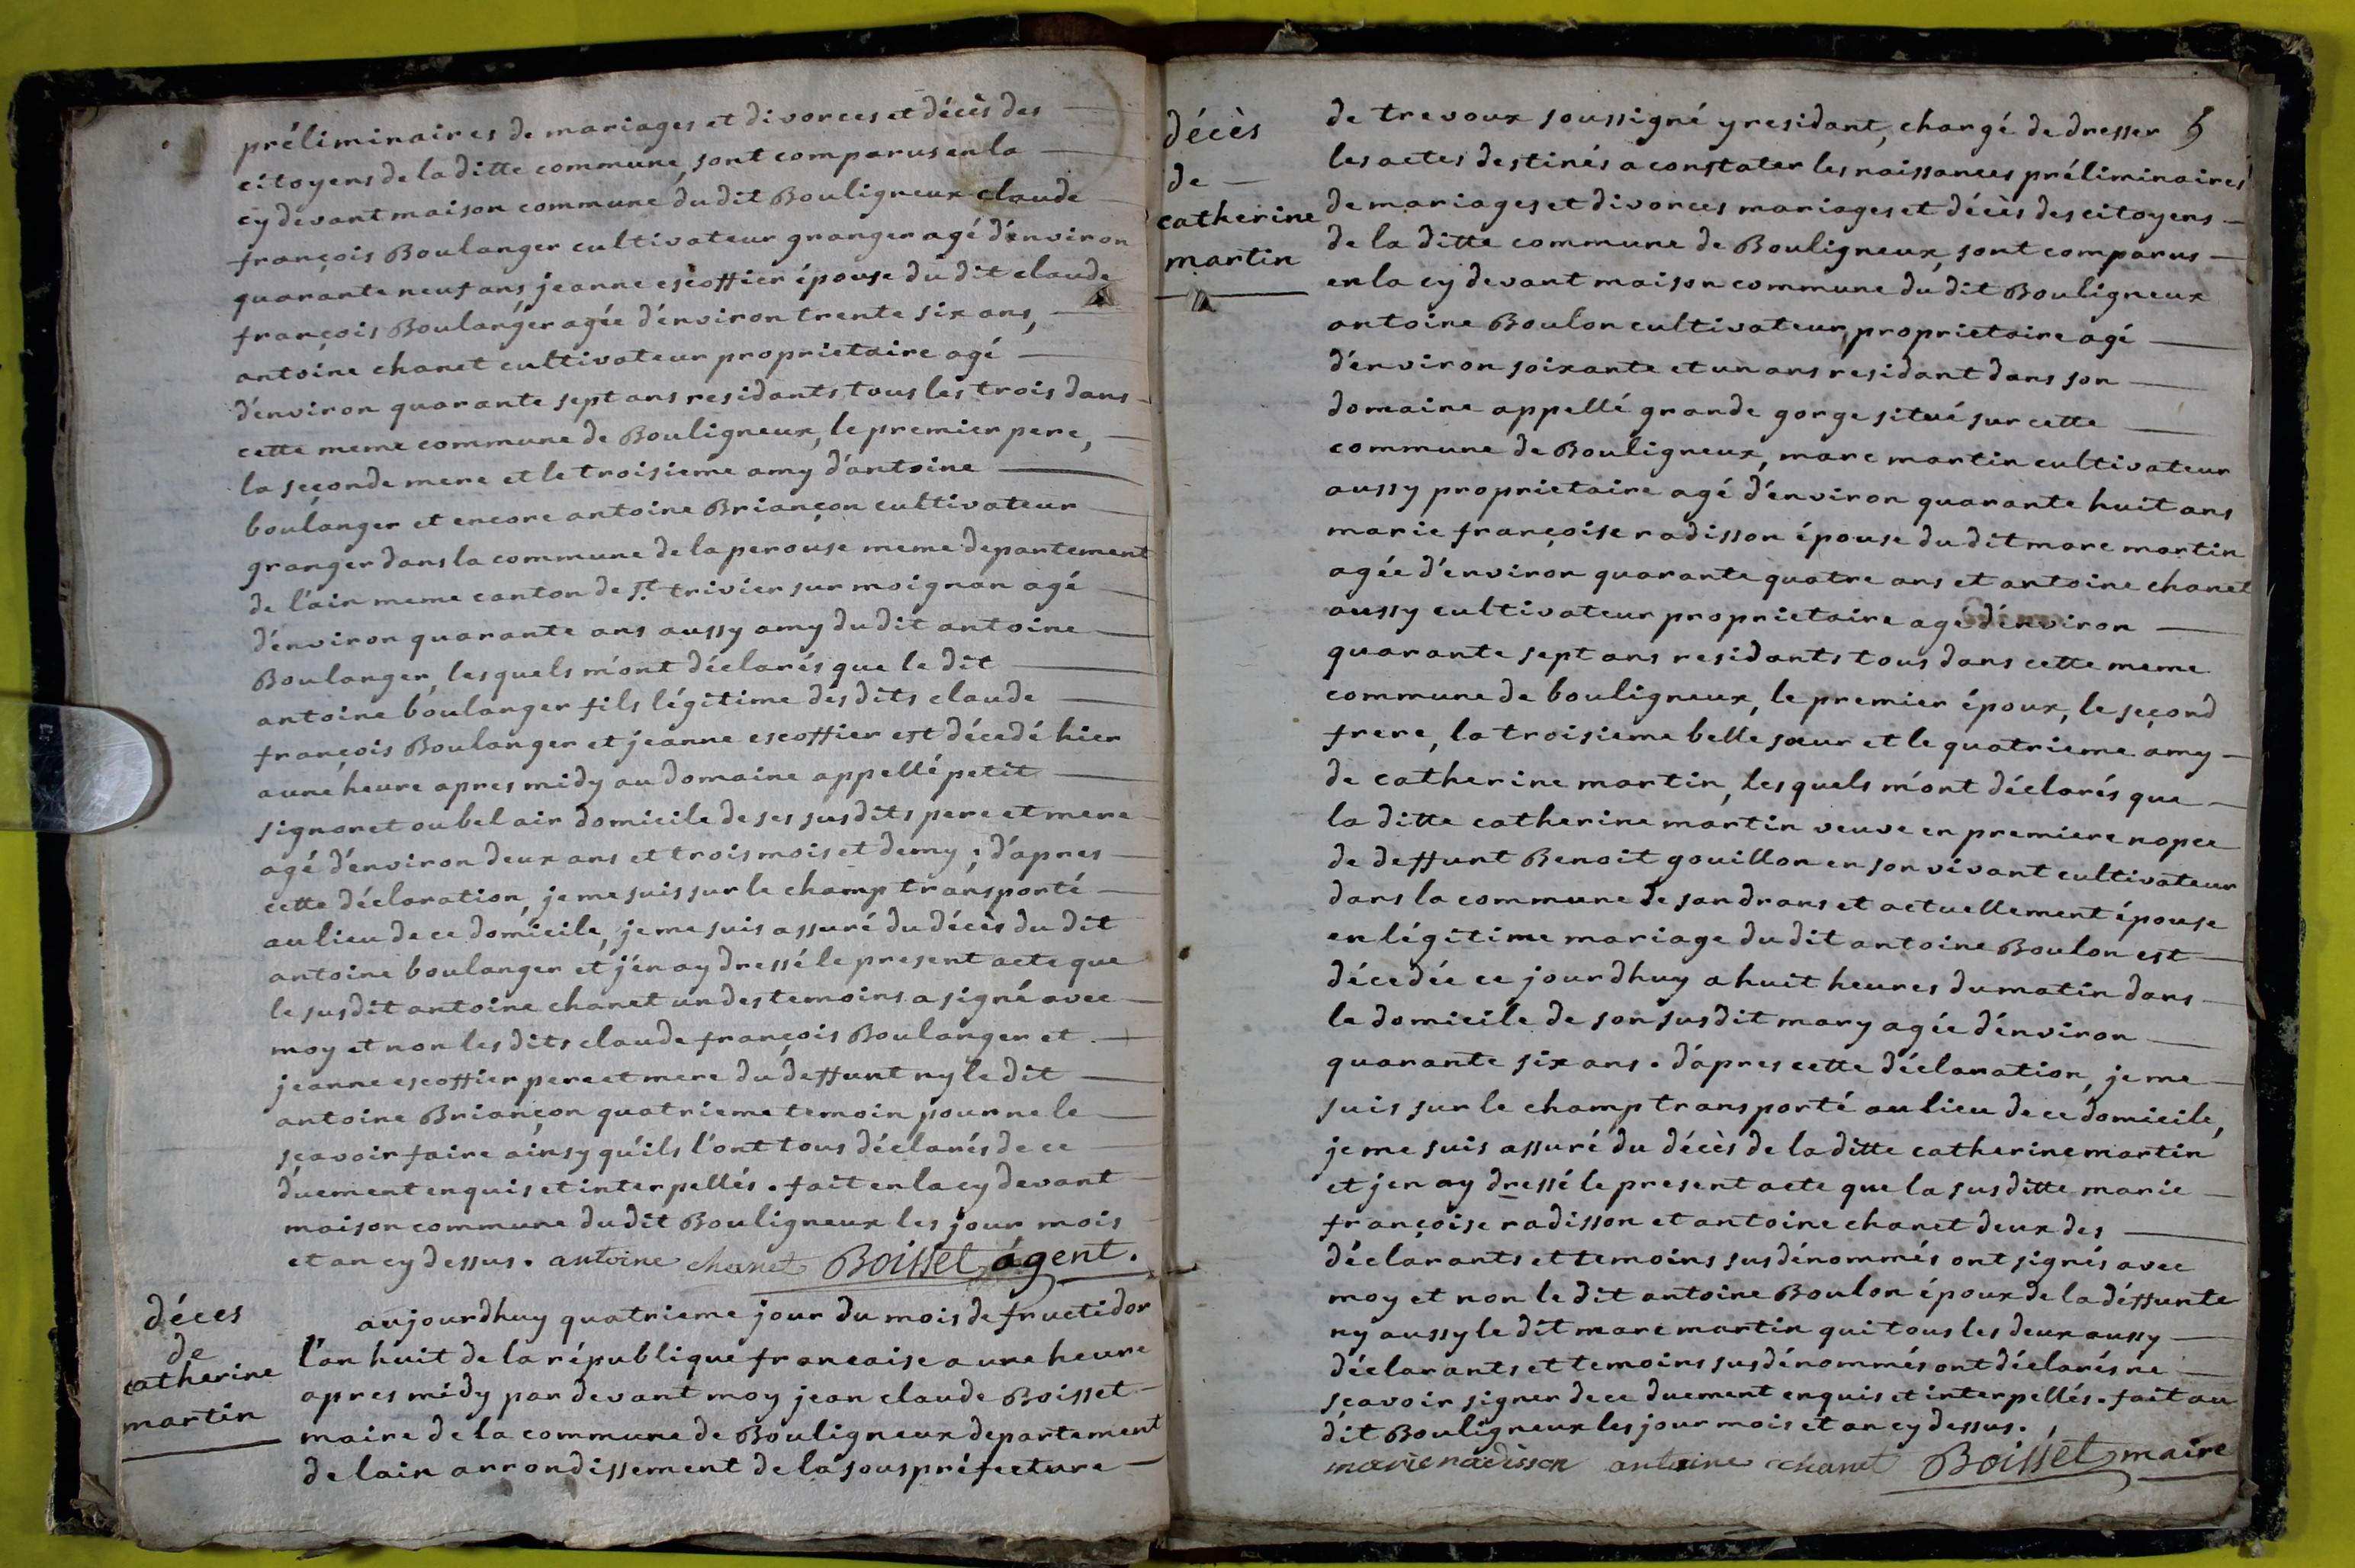 préliminaires de mariages et divorces et décès des
citoyens de la ditte commune, sont comparus en la
cy devant maison commune du dit Bouligneux claude
françois Boulanger cultivateur granger agé d'environ
quarante neuf ans, jeanne escoffier épouse du dit claude
françois Boulanger agée d'environ trente six ans,
antoine chanet cultivateur proprietaire agé
d'environ quarante sept ans residants tous les trois dans
cette meme commune de Bouligneux, le premier pere,
la seçonde mere et le troisieme amy d'antoine
boulanger et encore antoine Briançon cultivateur
granger dans la commune de la perouse meme departement
de l'ain meme canton de st trivier sur moignan agé
d'environ quarante ans aussy amy du dit antoine
Boulanger, lesquels m'ont déclarés que le dit
antoine boulanger fils légitime des dits claude
françois Boulanger et jeanne escoffier est décedé hier
a une heure apres midy au domaine appellé petit
signoret ou bel air domicile de ses susdits pere et mere
agé d'environ deux ans et trois mois et demy ; d'apres
cette déclaration, je me suis sur le champ transporté
au lieu de ce domicile, je me suis assuré du décès du dit
antoine boulanger et j'en ay dressé le present acte que
le susdit antoine chanet un des temoins a signé avec
moy et non les dits claude françois Boulanger et
jeanne escoffier pere et mere du deffunt ny le dit
antoine Briançon quatrieme temoin pour ne le
sçavoir faire ainsy qu'ils l'ont tous déclarés de ce
duement enquis et interpellés . fait en la cy devant
maison commune du dit Bouligneux les jour mois
et an cy dessus . antoine chanet Boisset agent.
déces
de
catherine
martin
aujourdhuy quatrieme jour du mois de fructidor
l'an huit de la république francaise a une heure
apres midy par devant moy jean claude Boisset
maire de la commune de Bouligneux departement
de lain arrondissement de la sous préfecture
5
décès
de
catherine
martin
de trevoux soussigné y residant, chargé de dresser
les actes destinés a constater les naissances préliminaires
de mariages et divorces mariages et décès des citoyens
de la ditte commune de Bouligneux, sont comparus
en la cy devant maison commune du dit Bouligneux
antoine Boulon cultivateur proprietaire agé
d'environ soixante et un ans residant dans son
domaine appellé grande gorge situé sur cette
commune de Bouligneux, marc martin cultivateur
aussy proprietaire agé d'environ quarante huit ans
marie françoise radisson épouse du dit marc martin
agée d'environ quarante quatre ans et antoine chanet
aussy cultivateur proprietaire agé d'environ
quarante sept ans residants tous dans cette meme
commune de bouligneux, le premier époux, le seçond
frere, la troisieme belle sœur et le quatrieme amy
de catherine martin, lesquels m'ont déclarés que
la ditte catherine martin veuve en premiere nopce
de deffunt Benoit gouillon en son vivant cultivateur
dans la commune de sandrans et actuellement épouse
en légitime mariage du dit antoine Boulon est
décedée ce jourdhuy a huit heures du matin dans
le domicile de son susdit mary agée d'environ
quarante six ans . d'apres cette déclaration, je me
suis sur le champ transporté au lieu de ce domicile,
je me suis assuré du décès de la ditte catherine martin
et j'en ay dressé le present acte que la susditte marie
françoise radisson et antoine chanet deux des
déclarants et temoins susdénommés ont signés avec
moy et non le dit antoine Boulon époux de la déffunte
ny aussy le dit marc martin qui tous les deux aussy
déclarants et temoins susdénommés ont déclarés ne
sçavoir signer de ce duement enquis et interpellés . fait au
dit Bouligneux les jour mois et an cy dessus.
marie radisson antoine chanet Boisset maire